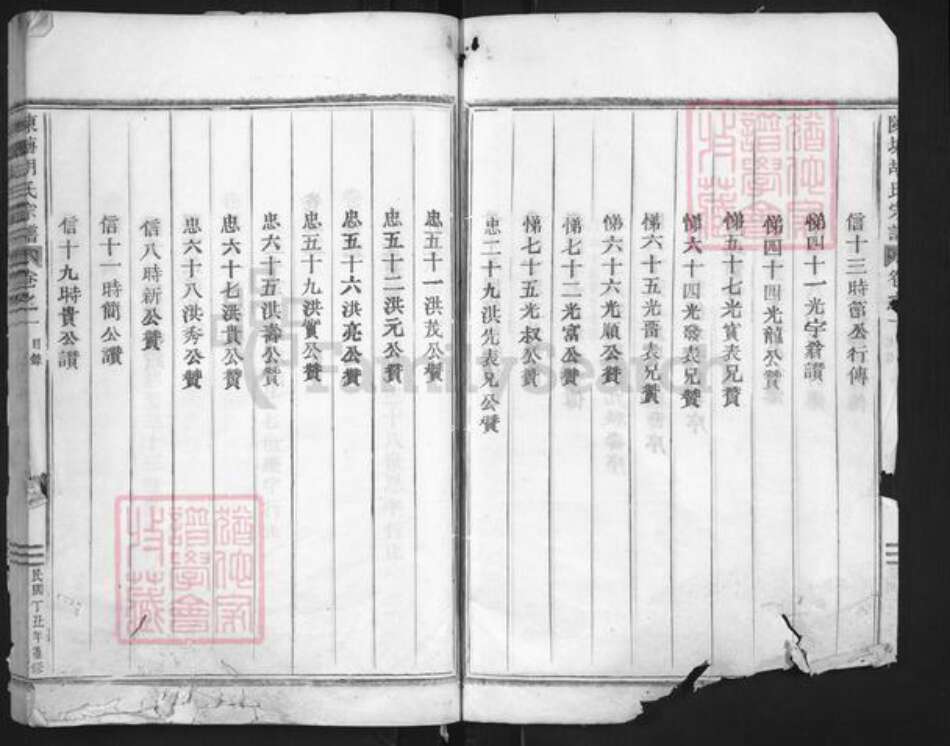 信十三時富公行傳
悌四十一光宇翁讚
悌四十四光龍公贊
悌五十七光實表兄贊
悌六十四光發表兄贊
悌六十五光喬表兄贊
悌六十六光順公贊
悌七十二光富公贊
悌七十五光叔公贊
忠二十九洪先表兄公贊
忠五十一洪茂公贊
忠五十二洪元公贊
忠五十六洪亮公贊
忠五十九洪賓公贊
忠六十五洪壽公贊
忠六十七洪貴公贊
忠六十八洪秀公贊
信八時新公贊
信十一時簡公讚
信十九時貴公讚
胡氏宗譜 卷之一 目錄
民國丁丑年重修
譜學會收藏
FamilySearch